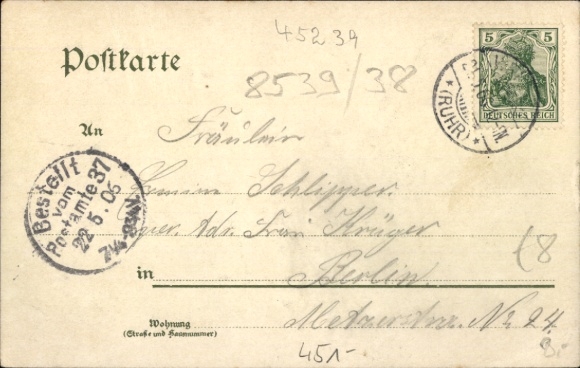 45239
Postkarte
8539/38
5 5
DEUTSCHES REICH
(RUHR)
An
Fräulein
Schlipper.
Adr. Frau Krüger
Bestellt
vom
Postamte 37
22.5.05
in Berlin.
Wohnung
(Straße und Hausnummer)
Metzerstr. No 24.
8.-
451-